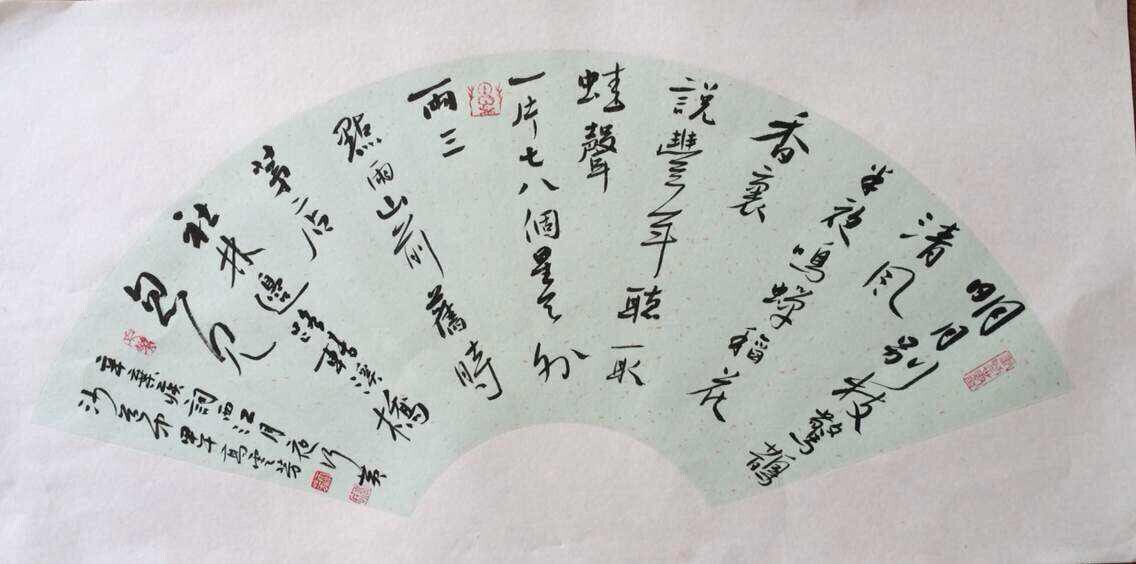 明月别枝驚鵲
清風
半夜鳴蟬稻花
香裏
說豐年聽取
蛙聲
一片七八個星天外
兩三
點雨山前舊時
茅店
社林邊路轉溪橋
忽見
辛棄疾詞西江月夜行黄
沙道中甲午高雲芳